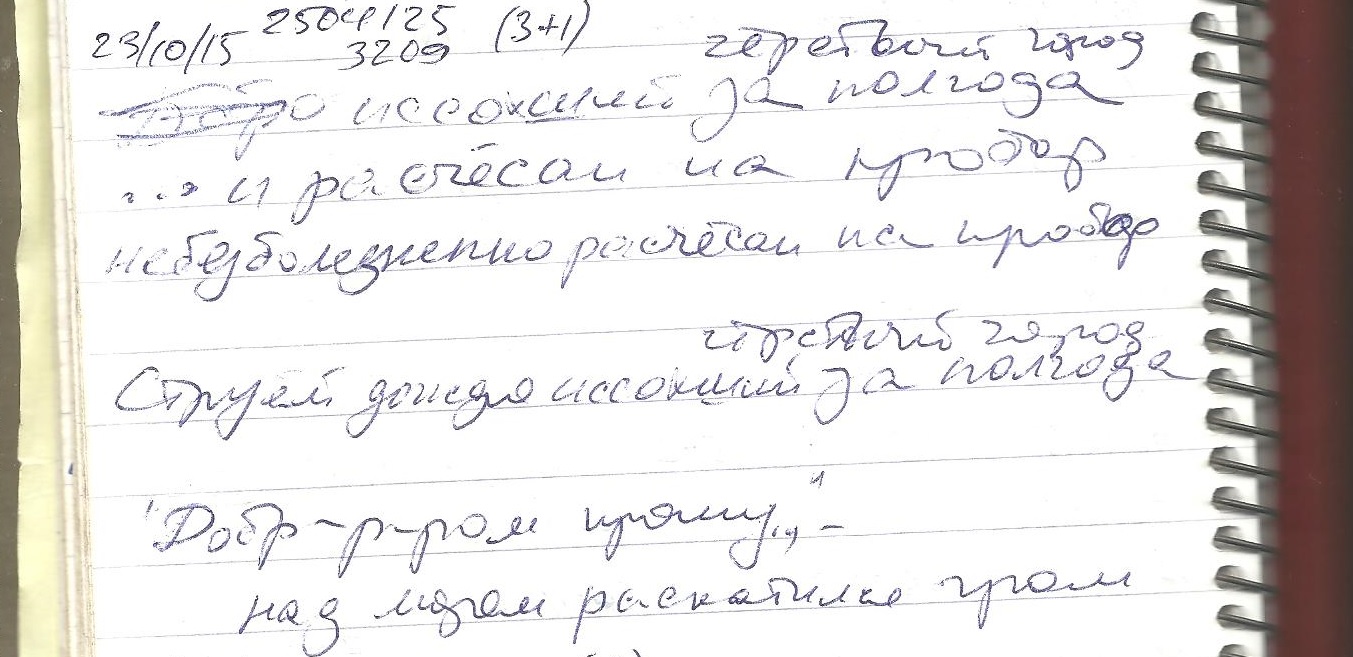 23/10/15 2504125 (3+1)
3209
черствый город
иссохший за полгода
... и расчёсан на пробор
небезболезненно расчёсан на пробор
черствый город
Струёй дождя иссохший за полгода
"Добр-р-ром прошу..," -
над морем раскатился гром